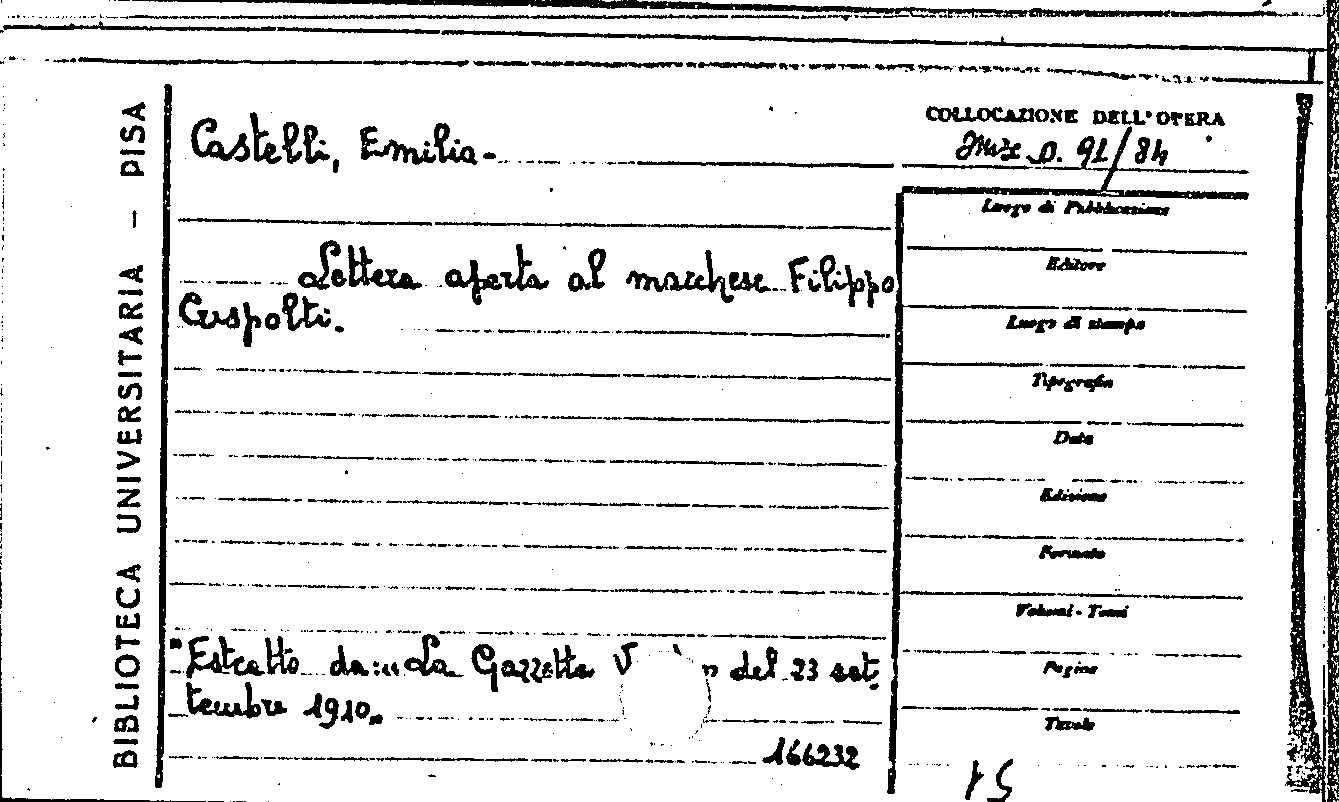 BIBLIOTECA UNIVERSITARIA - PISA
Castelli, Emilia -
COLLOCAZIONE DELL'OPERA
Misc D. 91/84
Lettera aperta al marchese Filippo
Crispolti.
"Estratto da: "La Gazzetta del 23 set-
tembre 1910"
166232
Luogo di Pubblicazione
Editore
Luogo di stampa
Tipografia
Data
Edizione
Formato
Volumi - Tomi
Pagine
Tavole
51